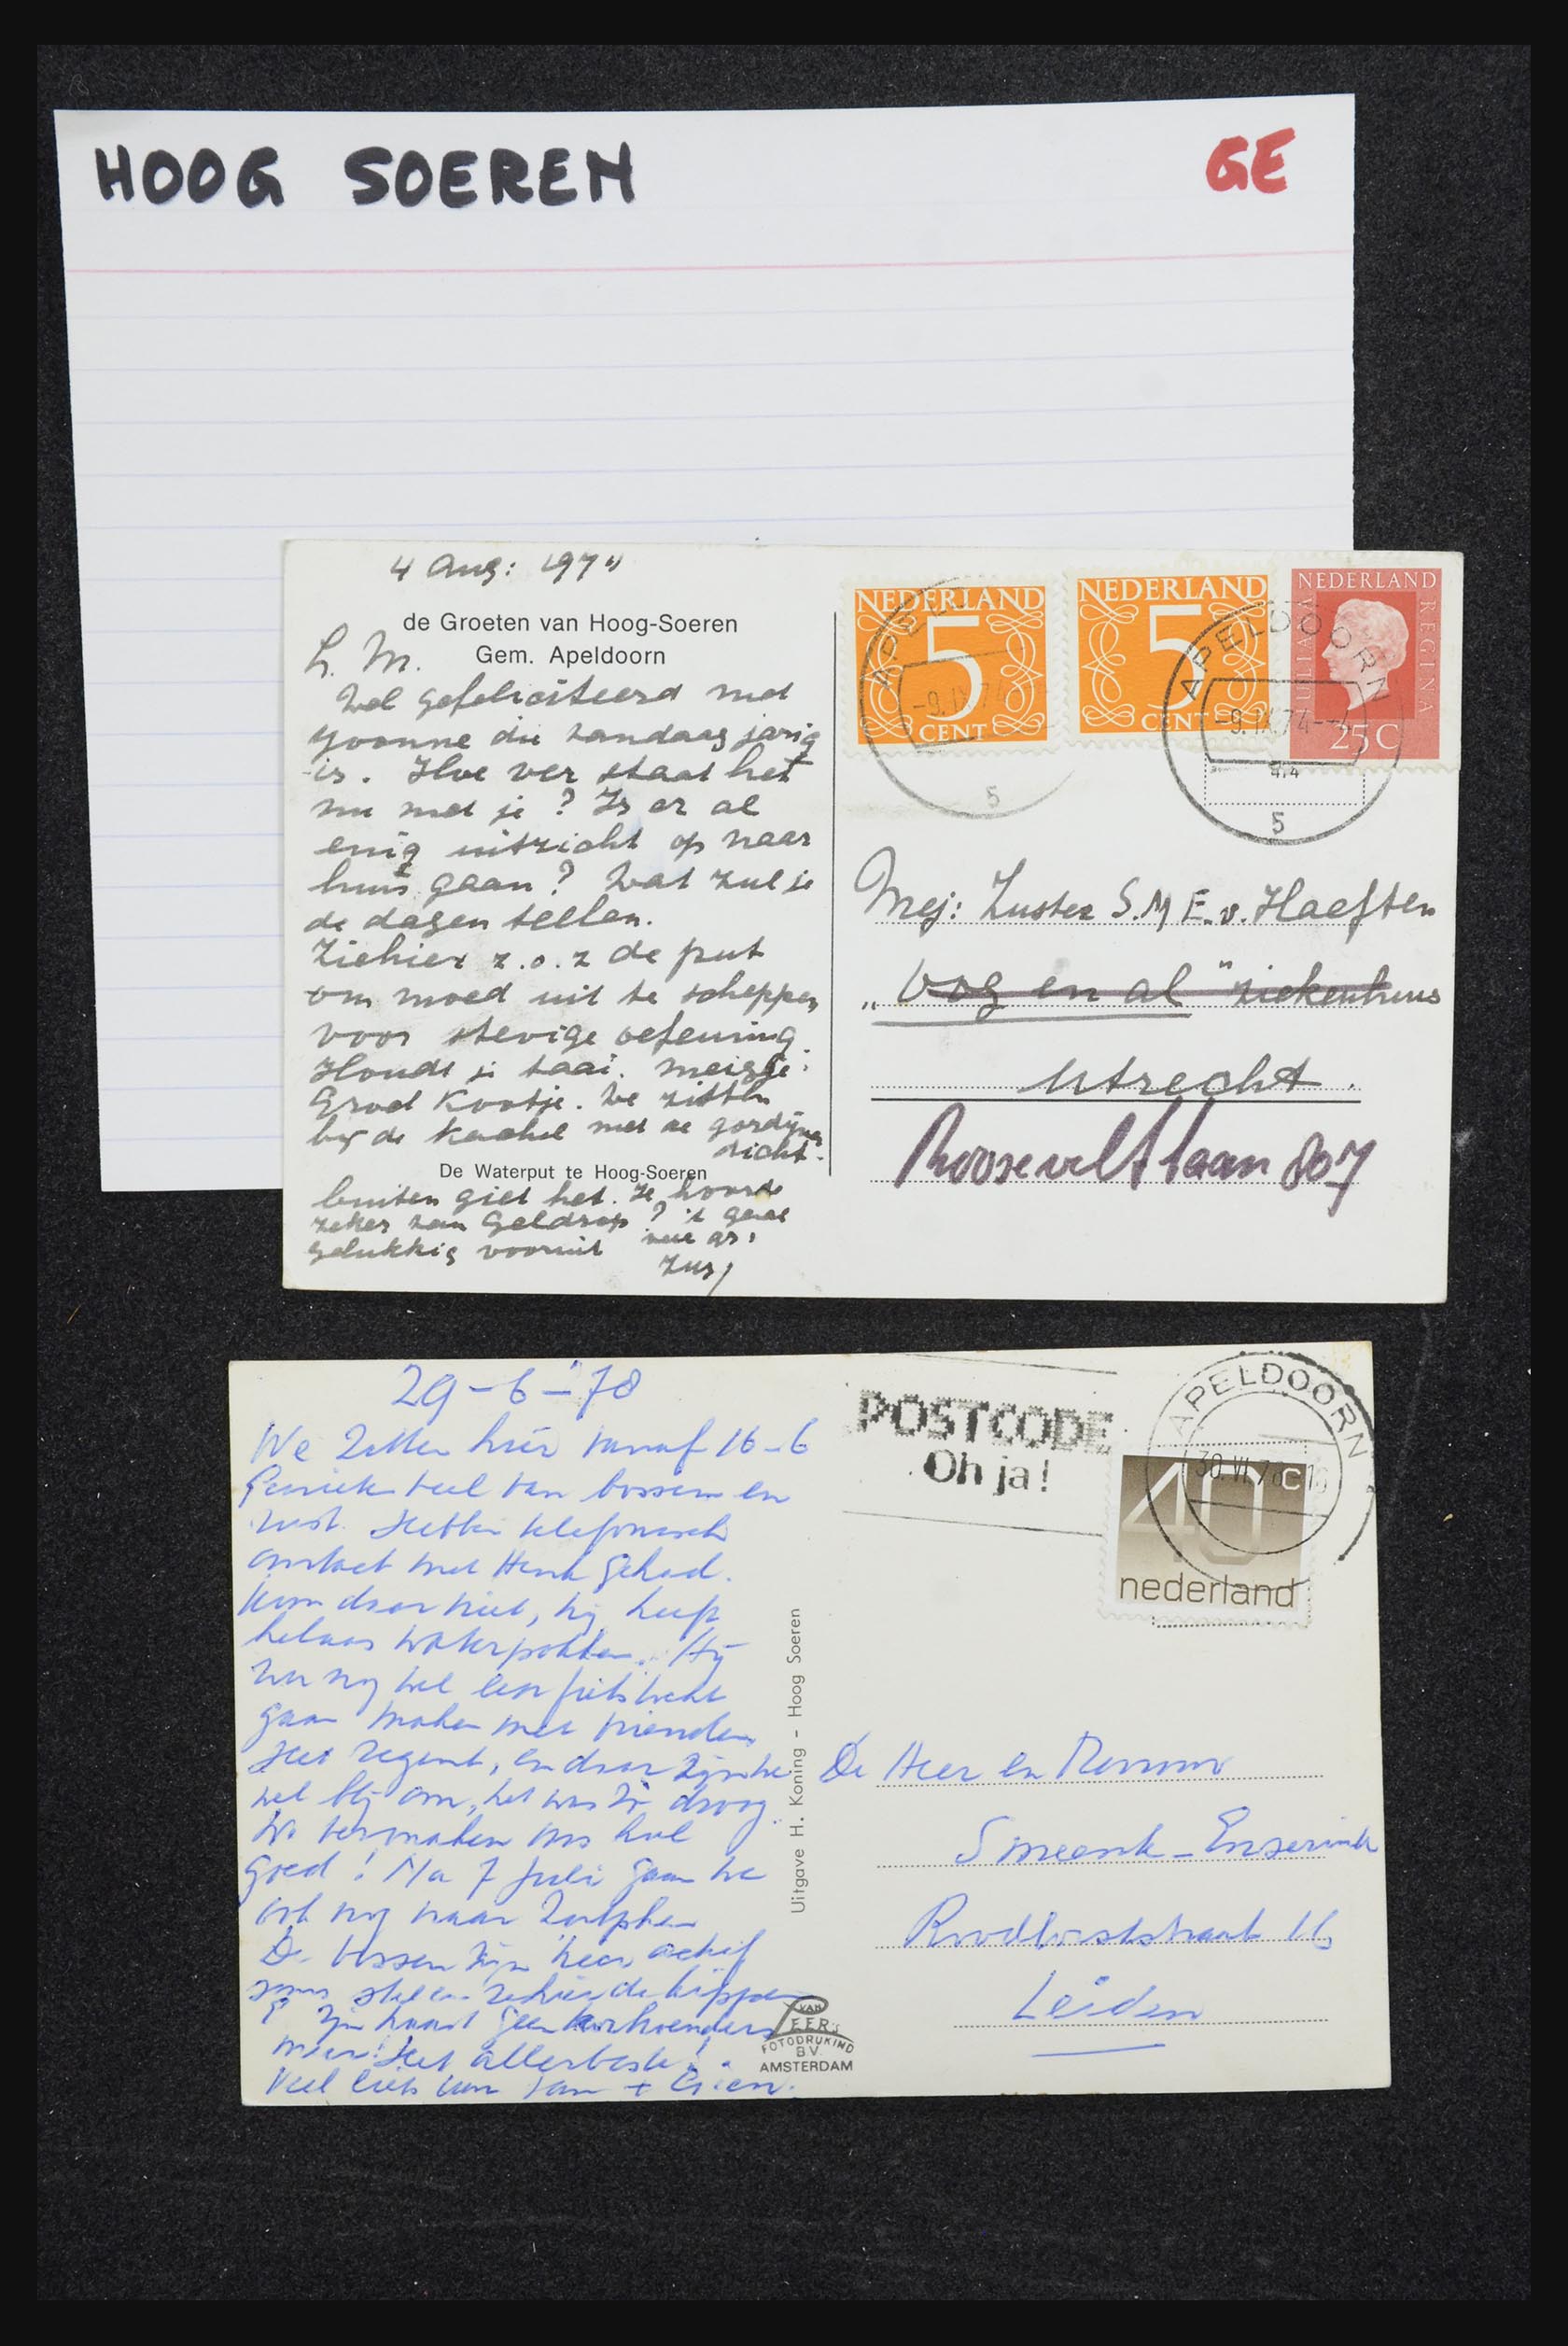 HOOG SOEREN
GE
4 Aug: 197
de Groeten van Hoog-Soeren
Gem. Apeldoorn
L. M.
Wel gefeliciteerd met
Yvonne die vandaag jarig
is. Hoe ver staat het
nu met je? Is er al
enig uitzicht op naar
huis gaan? Wat zul je
de dagen tellen.
Ziehier z.o.z de put
om moed uit te scheppen
voor stevige oefening.
Houdt je taai. meisje.
Groet Kootje. We zitten
bij de kachel met de gordijnen
dicht.
De Waterput te Hoog-Soeren
buiten giet het. Je hoorde
zeker van Geldrop? 't gaat
gelukkig vooruit
Zus
NEDERLAND
5
CENT
NEDERLAND
5
CENT
NEDERLAND
JULIANA
REGINA
25 C
APELDOORN
-9.IX.74
5
APELDOORN
-9.IX.74
5
Mej: Zuster S.M E. v. Haeften
„Oog en al" ziekenhuis
Utrecht.
Rooseveltlaan 807
29-6-'78
We zitten hier vanaf 16-6
Genieten veel van bossen en
rust. Hebben telefonisch
contact met Henk gehad.
Kom daar niet, hij heeft
helaas waterpokken. Hij
zou nog wel een fietstocht
gaan maken met vrienden
Het regent, en daar zijn we
wel blij om, het was zo droog.
We vermaken ons heel
goed! Na 7 juli gaan we
ook nog naar Zutphen
De bossen zijn heer
zijn haast geen korhoenders
meer! Het allerbeste!
Veel liefs van
POSTCODE
Oh ja!
APELDOORN
30.VI.78
40c
nederland
Uitgave H. Koning - Hoog Soeren
De Heer en Mevrouw
Smeenk-Enserink
Roodborststraat 16
Leiden
VAN
PEER'S
FOTODRUKIND
B.V.
AMSTERDAM